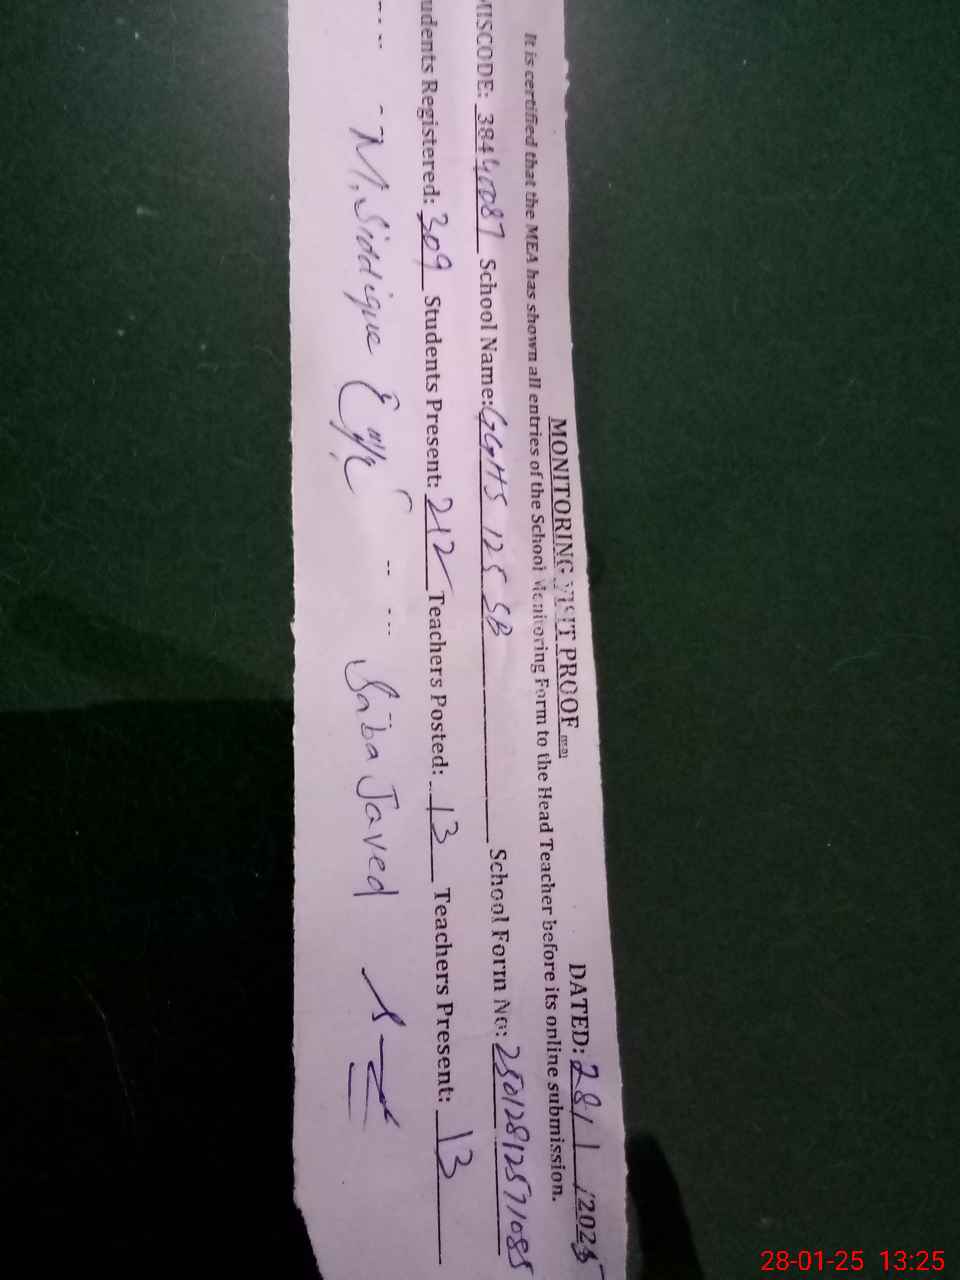 MONITORING VISIT PROOF DATED: 28/1/2025
It is certified that the MEA has shown all entries of the School Monitoring Form to the Head Teacher before its online submission.
MISCODE: 38440087 School Name: GGHS 125 SB School Form No: 2501281257108
udents Registered: 309 Students Present: 212 Teachers Posted: 13 Teachers Present: 13
M. Siddique Saba Javed
28-01-25 13:25